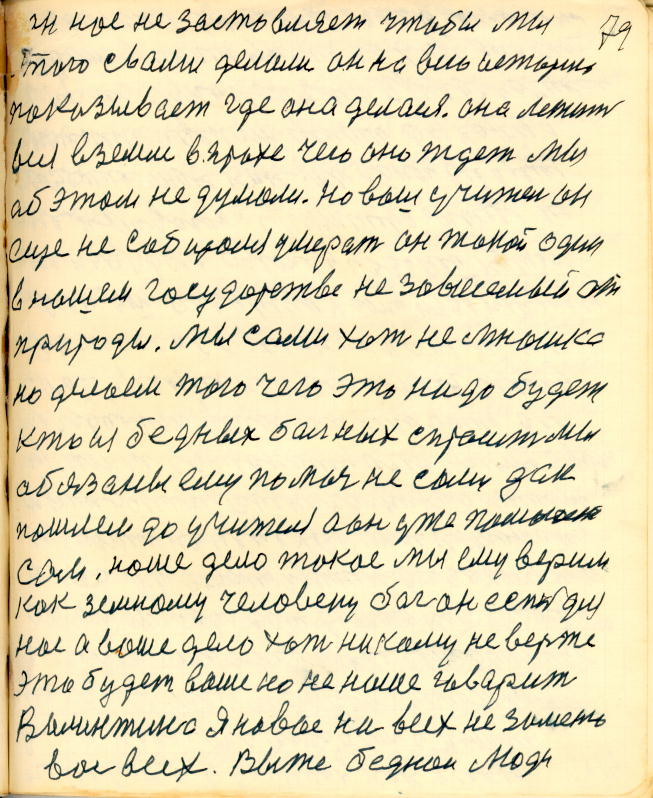 он нас не заставляет чтобы мы 79
этого свами делали он на вию историю
показывает где она делася. она лежит
вия вземли впрахе чего оно ждет мы
аб этом не думали. но ваш учител он
еще не собироия умерат он такой один
внашем государстве не завиеемый от
природы. мы сами хот не мношка
но делаем того чего это надо будет
ктоия бедных балных спрасит мы
обязаны ему помоч не сами дак
пошлем до учителя а он уже
сам. наше дело такое мы ему верим
как земному человеку бог он есть для
нас а ваше дело хот никому не верте
это будет ваше но не наше говарит
Валинтина Я новое на всех не
вас всех. Выже бедной люди